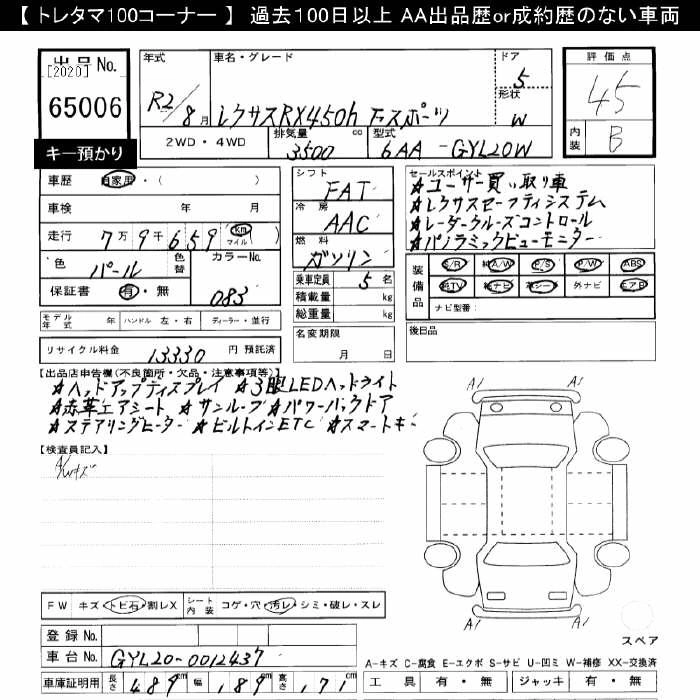 【 トレタマ100コーナー 】 過去100日以上 AA出品歴or成約歴のない車両
出品 No.
[2020]
65006
キー預かり
年式
R2/8月
車名・グレード
レクサスRX450h Fスポーツ
ドア
5
形状
W
2WD・4WD
排気量
3500 cc
型式
6AA - GYL20W
評価点
45
内装
B
車歴 自家用・( )
車検 年 月
走行 7万9千659 (km マイル)( )
色 パール 色替 カラーNo. 083
保証書 有・無
シフト
FAT
冷房
AAC
燃料
ガソリン
乗車定員 5 名
積載量 kg
総重量 kg
名変期限
月 日
セールスポイント
★ユーザー買い取り車
★レクサスセーフティシステム
★レーダークルーズコントロール
★パノラミックビューモニター
装備品
S/R 純A/W P/S P/W ABS
純TV 純ナビ 革シート 外ナビ エアB
ナビ型番:
後日品
モデル年式 年 ハンドル 左・右 ディーラー・並行
リサイクル料金 13330 円 預託済
【出品店申告欄(不良箇所・欠品・注意事項等)】
★ヘッドアップディスプレイ ★3眼LEDヘッドライト
★赤革エアシート ★サンルーフ ★パワーバックドア
★ステアリングヒーター ★ビルトインETC ★スマートキー
【検査員記入】
A1 A1
A1 A1
FW キズ・トビ石・割レX シート内装 コゲ・穴・汚レ・シミ・破レ・スレ
登録 No.
車台 No. GYL20-0012437
車庫証明用 長さ 489 cm 幅 189 cm 高さ 171 cm
スペア
A-キズ C-腐食 E-エクボ S-サビ U-凹ミ W-補修 XX-交換済
工具 有・無 ジャッキ 有・無